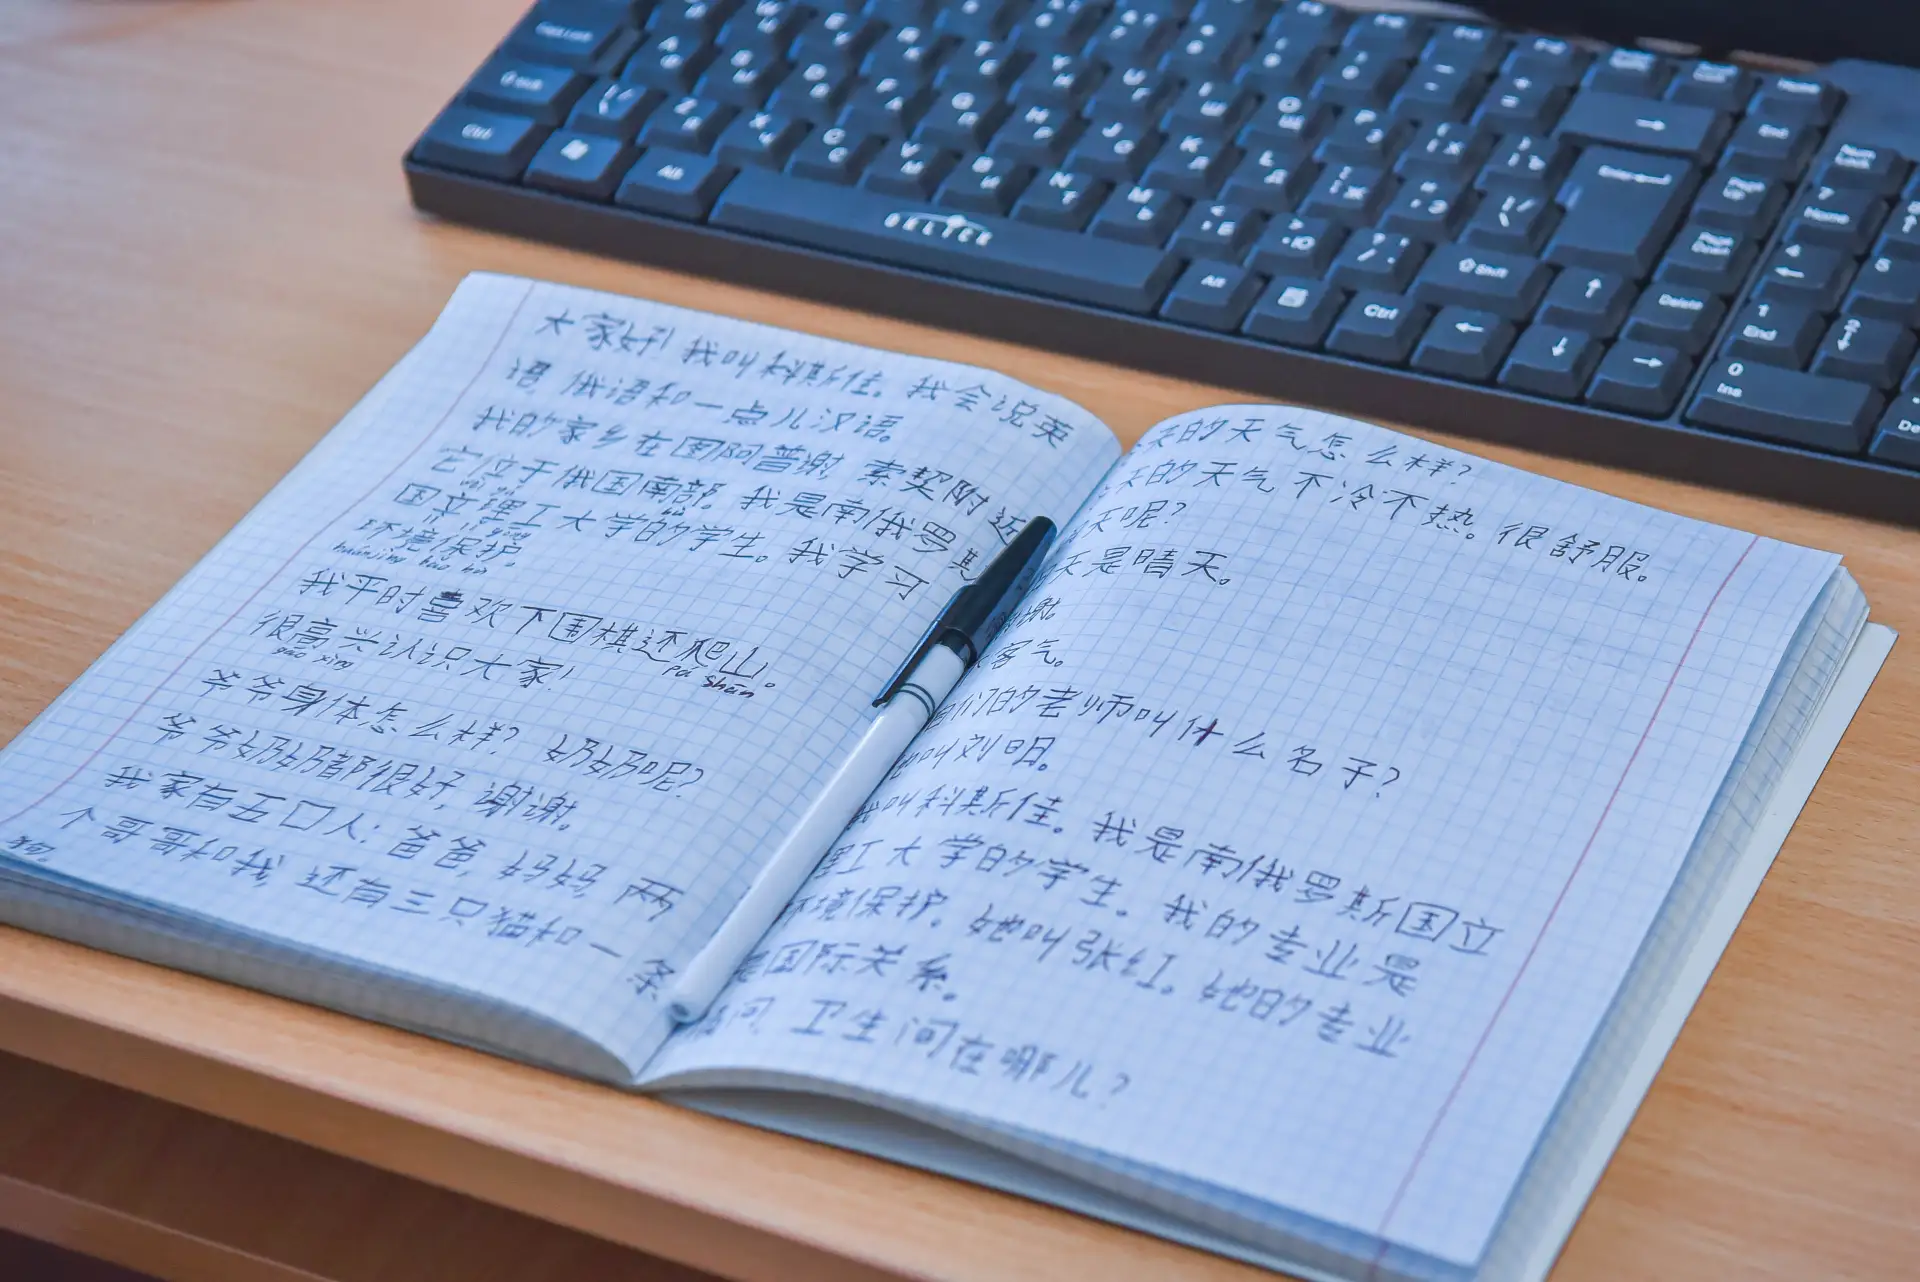 大家好! 我叫科斯佳。我会说英
语, 俄语和一点儿汉语。
我的家乡在图阿普谢, 索契附近
它位于俄国南部。我是南俄罗斯
国立理工大学的学生。我学习
环境保护。
huánjìng bǎo hù
我平时喜欢下围棋还爬山。
pá shān
很高兴认识大家!
gāo xìng
爷爷身体怎么样? 奶奶呢?
爷爷奶奶都很好, 谢谢。
我家有五口人: 爸爸, 妈妈, 两
个哥哥和我, 还有三只猫和一条
狗。
天的天气怎么样?
天的天气不冷不热。很舒服。
天呢?
天是晴天。
谢。
客气。
们的老师叫什么名子?
他叫刘明。
我叫科斯佳。我是南俄罗斯国立
理工大学的学生。我的专业是
环境保护。她叫张红。她的专业
是国际关系。
请问, 卫生间在哪儿?
DELTER
Ctrl
Alt
Alt
Ctrl
Shift
Enter
Delete
End
Home
Page Up
Page Down
Num Lock
7 Home
4
1 End
0 Ins